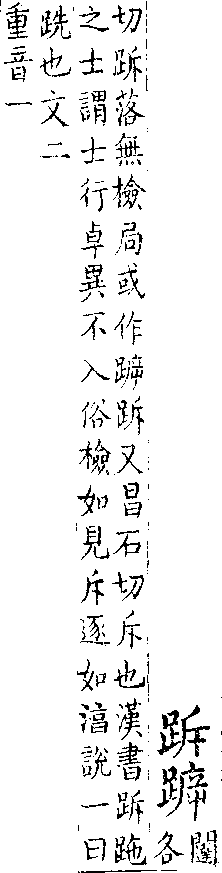 跅
闥
各
切跅落無檢局或作跅又昌石切斥也漢書跅
之士謂士行卓異不入俗檢如見斥逐如湻說一曰
跣也文二
重音一